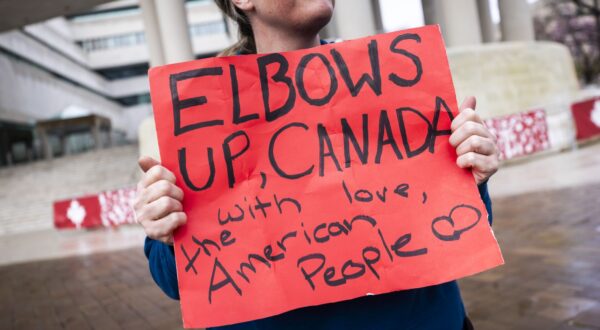 ELBOWS
UP, CANADA
with love,
the American
People